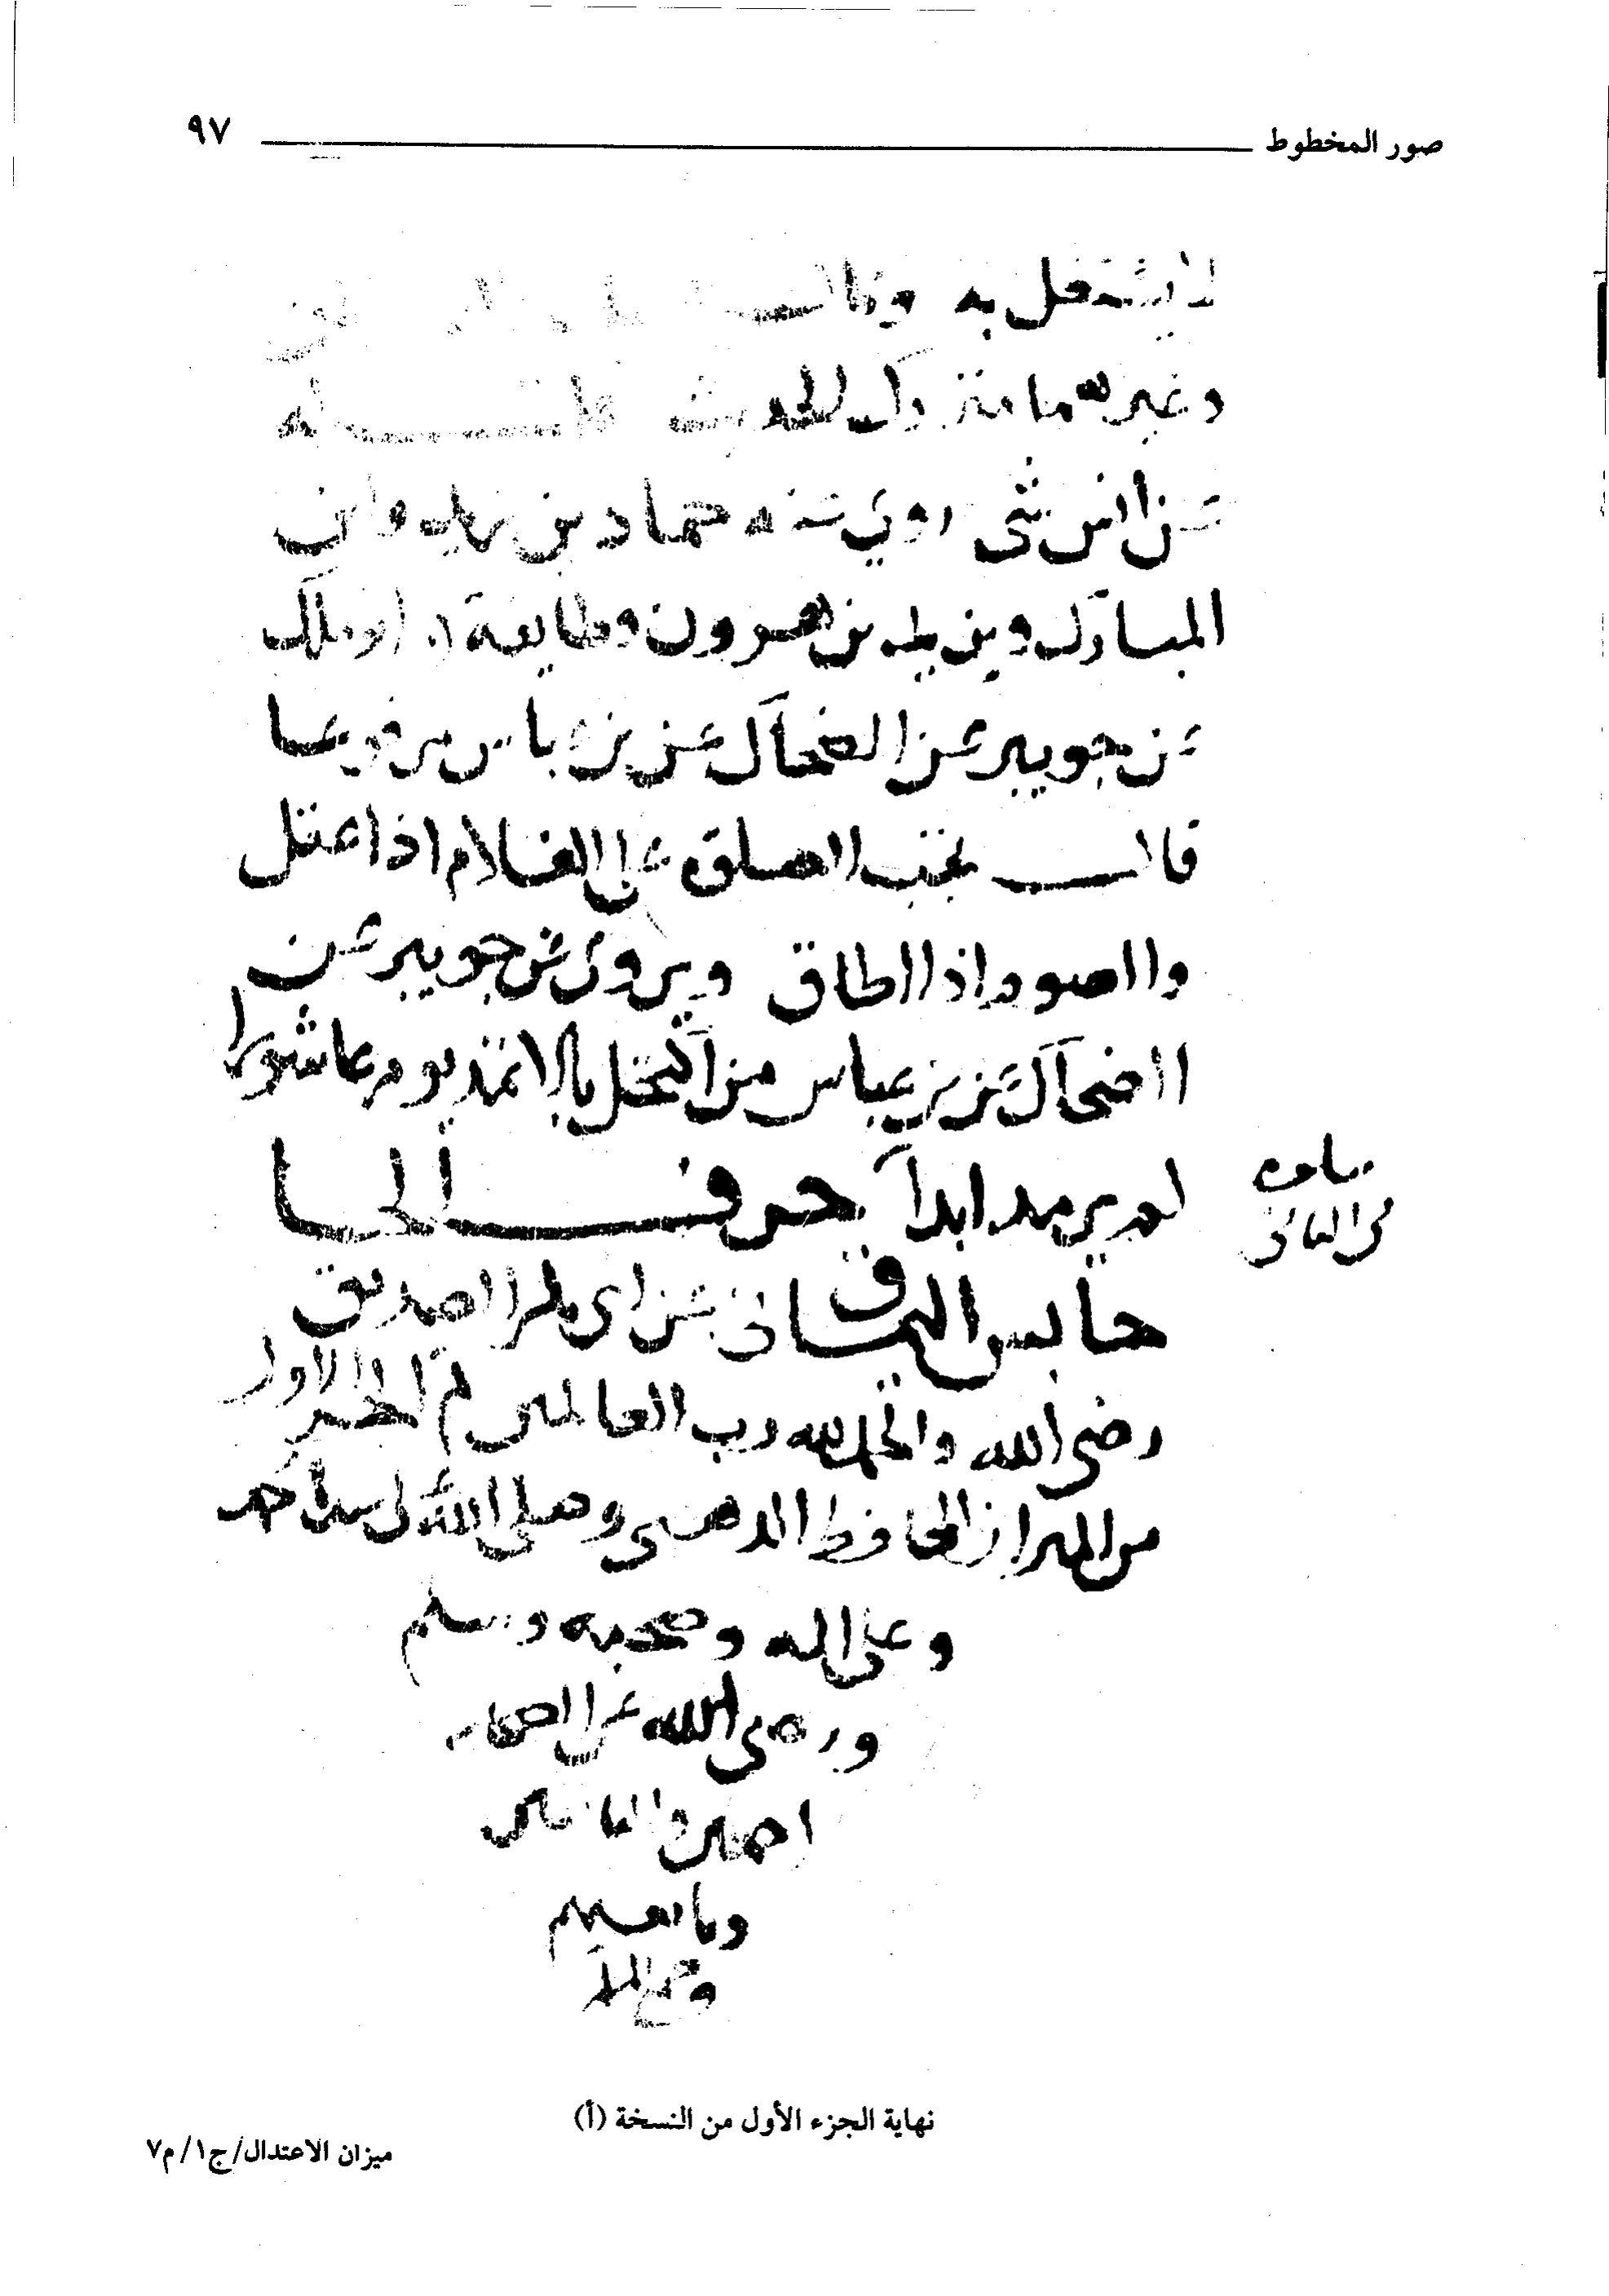 صور المخطوط ٩٧
لا يشتغل به وقال
وغيرهما متروك الحديث قلت له
عن انس شي روي عنه حماد بن زيد وابن
المبارك ويزيد بن هرون وطايفة ابو ملك
عن جويبر عن الضحاك عن بن عباس مرفوعا
قال تجب الصلوة على الغلام اذا عقل
والصوم اذا اطاق ويروى عن جويبر عن
الضحاك عن بن عباس من اكتحل بالاثمد يوم عاشورا
لم يرمد ابدا حرف الحا
يتلوه
في الثاني
حابس اليماني عن ابي بكر الصديق
رضي الله والحمد لله رب العالمين تم الجزء الاول
من الميزان للحافظ الذهبي وصلى الله على سيدنا محمد
وعلى اله وصحبه وسلم
ورضي الله عن الصحابه
اجمعين والتابعين
وتابعيهم
نهاية الجزء الأول من النسخة (أ)
ميزان الاعتدال/ج١/م٧